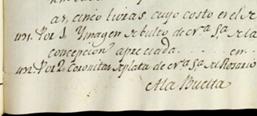 as, cinco libras, cuyo costo en el se
un. Por 1 Ymagen de bulto de nra Sa de la
concepcion apreciada.... en...
un. Por 2 Coronitas de plata de nra Sa del Rosario
A la Buelta